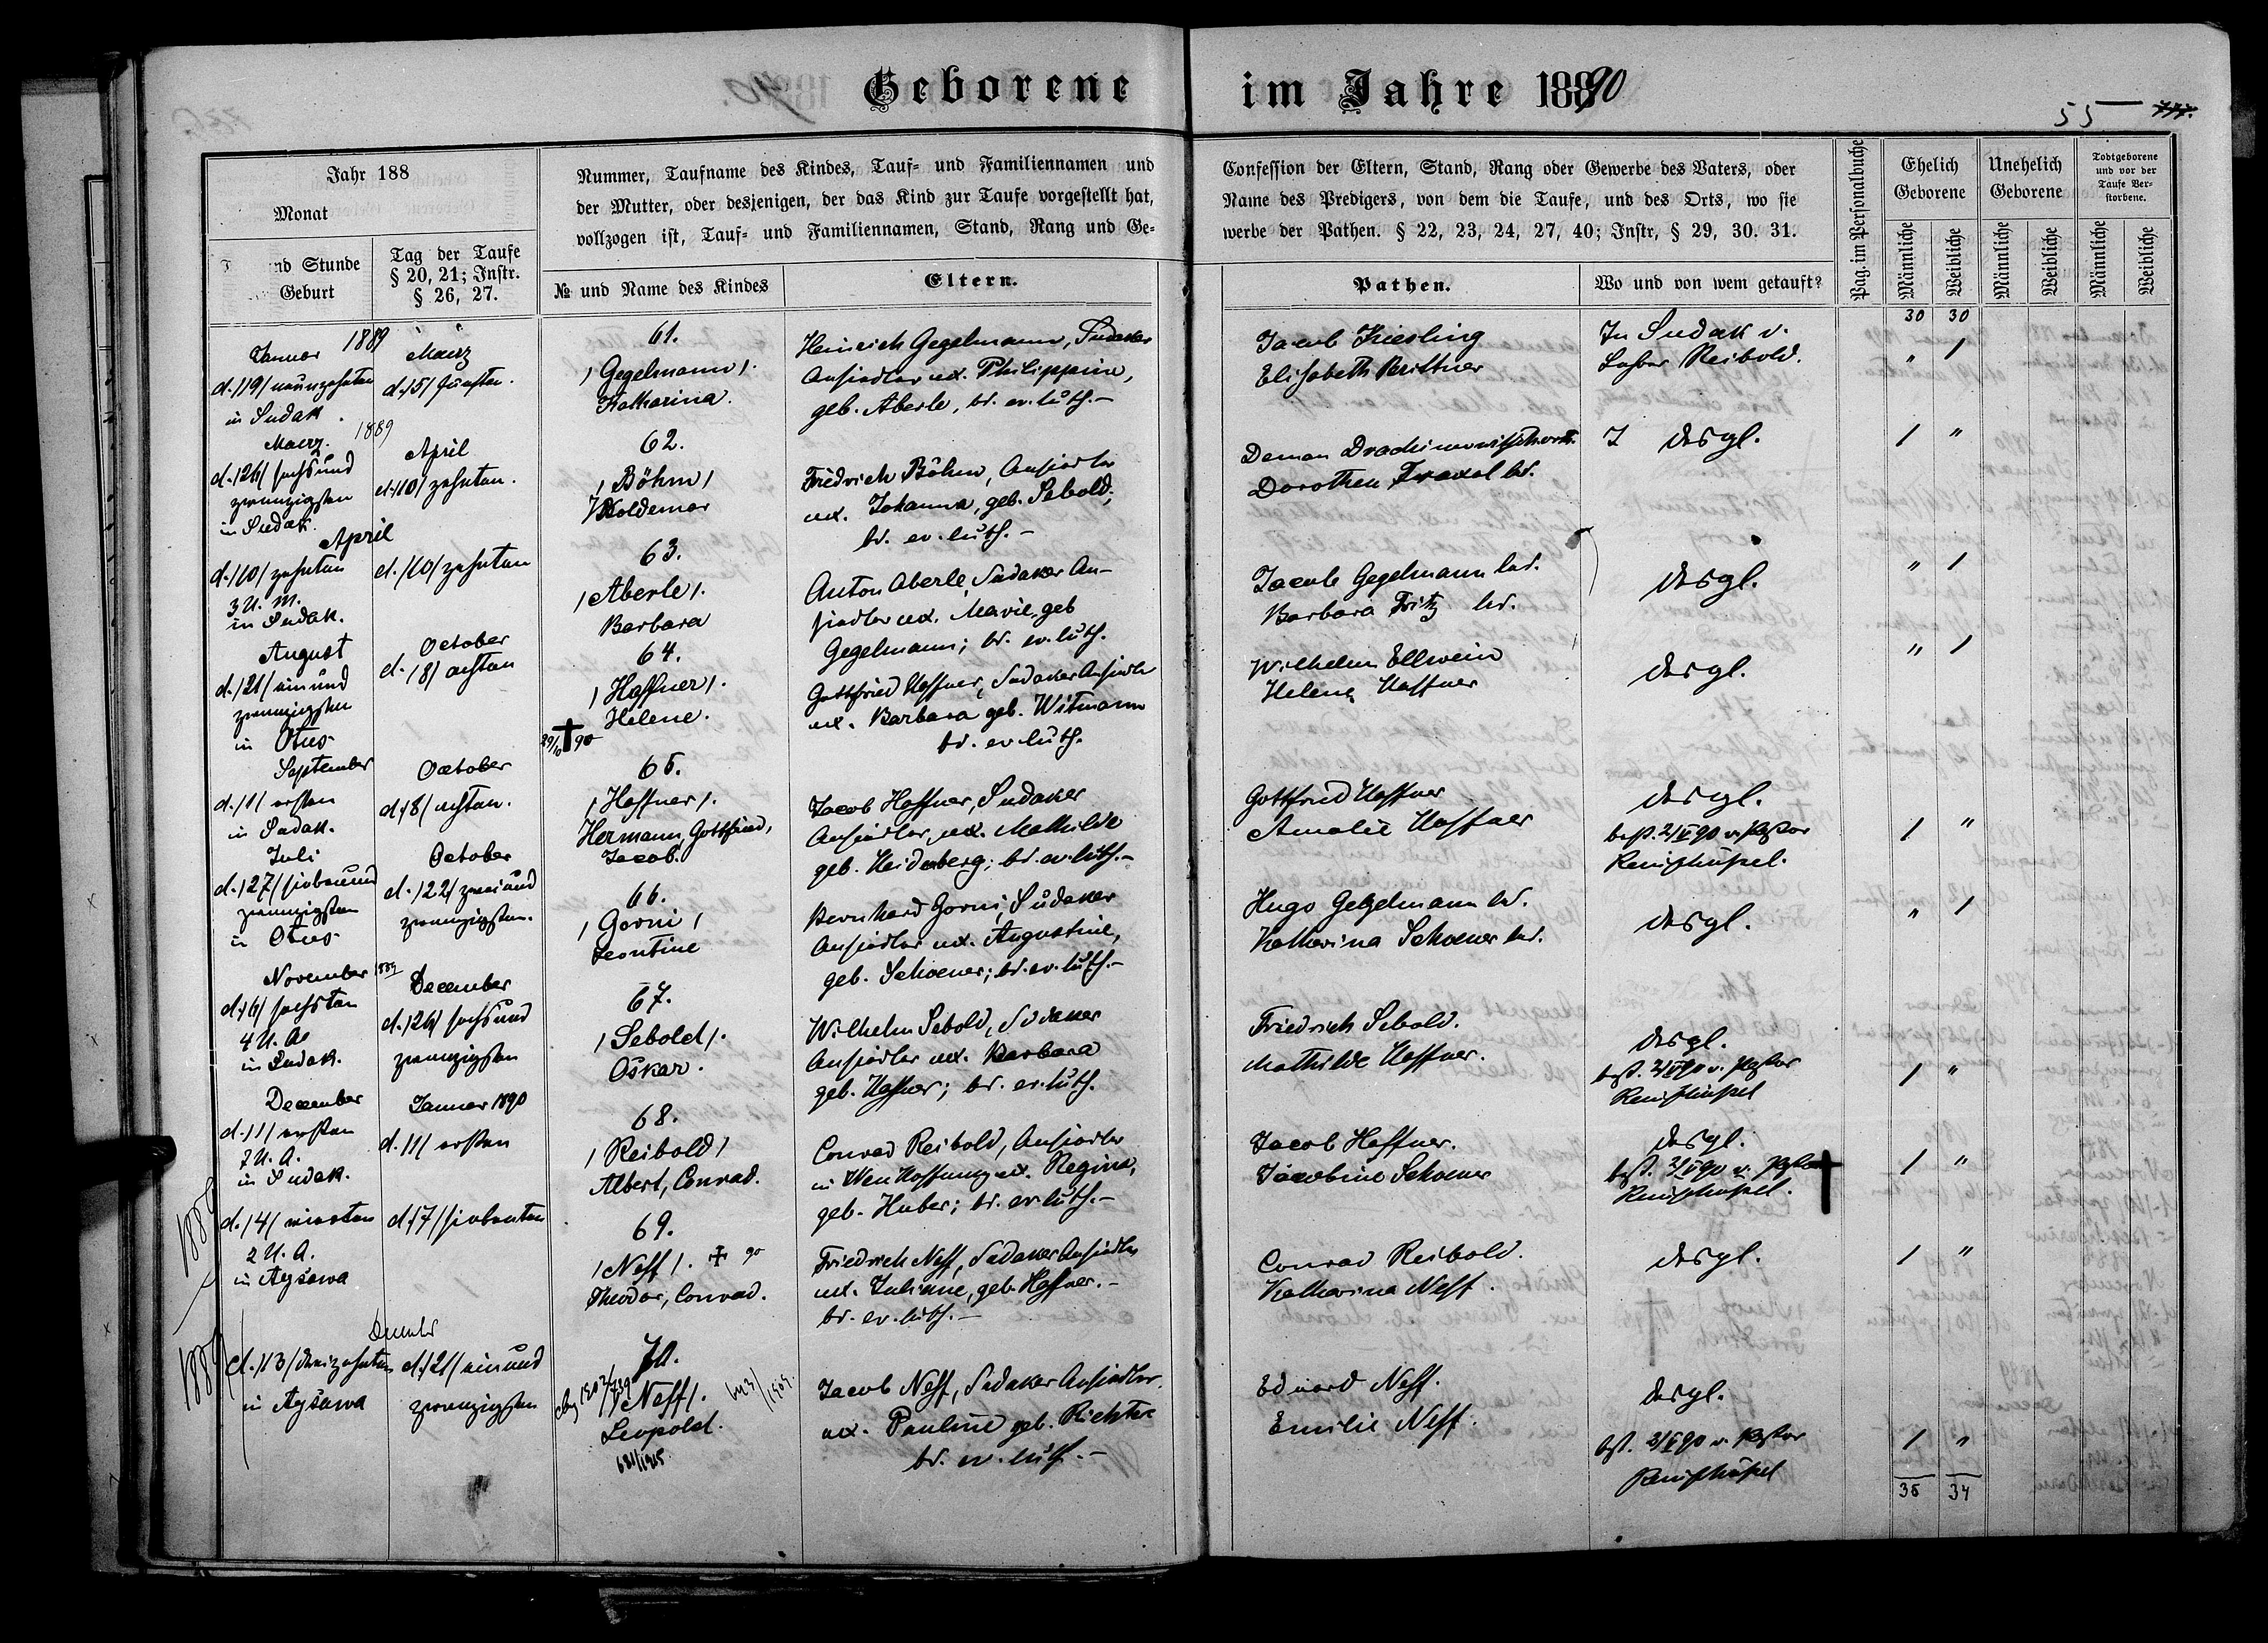 Geborene im Jahre 18890
55
Jahr 188
Monat
nd Stunde
Geburt
Tag der Taufe
§ 20, 21; Instr.
§ 26, 27.
Nummer, Taufname des Kindes, Tauf- und Familiennamen und
der Mutter, oder desjenigen, der das Kind zur Taufe vorgestellt hat,
vollzogen ist, Tauf- und Familiennamen, Stand, Rang und Ge-
№ und Name des Kindes
Eltern.
Confession der Eltern, Stand, Rang oder Gewerbe des Vaters, oder
Name des Predigers, von dem die Taufe, und des Orts, wo sie
werbe der Pathen. § 22, 23, 24, 27, 40; Instr, § 29, 30. 31.
Pathen.
Wo und von wem getauft?
Pag. im Personalbuche
Ehelich
Geborene
Unehelich
Geborene
Todtgeborene
und vor der
Taufe Ver-
storbene.
Männliche
Weibliche
Männliche
Weibliche
Männliche
Weibliche
30 30
Januar 1889
d. /19/ neunzehnten
in Sudak.
Maerz
d. /5/ fünften.
61.
/Gegelmann/.
Katharina.
Heinrich Gegelmann, Sudaker
Ansiedler ux. Philippine,
geb. Aberle, bd. ev. luth.-
Jacob Kiesling
Elisabeth Brittner
In Sudak v.
Reibold.
" /
Maerz. 1889
d. /26/ sechsund
zwanzigsten
in Sudak.
April
d. /10/ zehnten.
62.
/Böhm/
Woldemar
Friedrich Böhm, Ansiedler
ux. Johanna, geb. Sebold;
bd. ev. luth.-
Dorothea
desgl.
/ "
April
d. /10/ zehnten
3 U. M.
in Sudak.
d. /10/ zehnten
63.
/Aberle/.
Barbara
Anton Aberle, Sudaker An-
siedler ux. Marie, geb
Gegelmann; bd. ev. luth.
Jacob Gegelmann led.
Barbara Fritz led.
desgl.
" /
August
d. /21/ einund
zwanzigsten
in Otus
October
d. /8/ achten
64.
/Haffner/.
Helene.
29/10 † 90
Gottfried Haffner, Sudaker Ansiedler
ux. Barbara geb. Witmann
bd. ev. luth.
Wilhelm Ellwein
Helene Haffner
desgl.
" /
September
d. /1/ ersten
in Sudak.
October
d. /8/ achten.
65.
/Haffner/.
Hermann, Gottfried,
Jacob.
Jacob Haffner, Sudaker
Ansiedler, ux. Mathilde
geb. Heidenberg; bd. ev. luth.-
Gottfried Haffner
Amalie Haffner
desgl.
best. 2/V 90 v. Pastor
/ "
Juli
d. /27/ siebenund
zwanzigsten
in Otus
October
d. /22/ zweiund
zwanzigsten.
66.
/Gorni/
Leontine
Bernhard Gorni, Sudaker
Ansiedler ux. Augustine,
geb. Schoener; bd. ev. luth.-
Hugo Gegelmann led.
Katharina Schoener led.
desgl.
" /
November 1889
d. /6/ sechsten
4 U. A.
in Sudak.
December
d. /26/ sechsund
zwanzigsten
67.
/Sebold/.
Oskar.
Wilhelm Sebold, Sudaker
Ansiedler ux. Barbara
geb. Haffner; bd. ev. luth.
Friedrich Sebold.
Mathilde Haffner.
desgl.
best. 2/V 90 v. Pastor
/ "
December
d. /1/ ersten
7 U. A.
in Sudak.
Januar 1890
d. /1/ ersten
68.
/Reibold/
Albert, Conrad.
Conrad Reibold, Ansiedler
in Neu Hoffnung ux. Regina,
geb. Huber; bd. ev. luth.-
Jacob Haffner.
Jacobine Schoener
desgl.
best. 2/V 90 v. Pastor †
/ "
1889
d. /4/ vierten
2 U. A.
in Aysawa
d. /7/ siebenten
69.
/Neff/. † 90
Theodor, Conrad.
Friedrich Neff, Sudaker Ansiedler
ux. Juliane, geb. Haffner.-
bd. ev. luth.-
Conrad Reibold.
Katharina Neff.
desgl.
/ "
1889
December
d. /13/ dreizehnten
in Aysawa
d. /21/ einund
zwanzigsten
70.
/Neff/.
Leopold.
Jacob Neff, Sudaker Ansiedler.
ux. Pauline geb. Richter
bd. ev. luth.-
Eduard Neff.
Emilie Neff.
desgl.
best. 2/V 90 v. Pastor
/ "
35 34